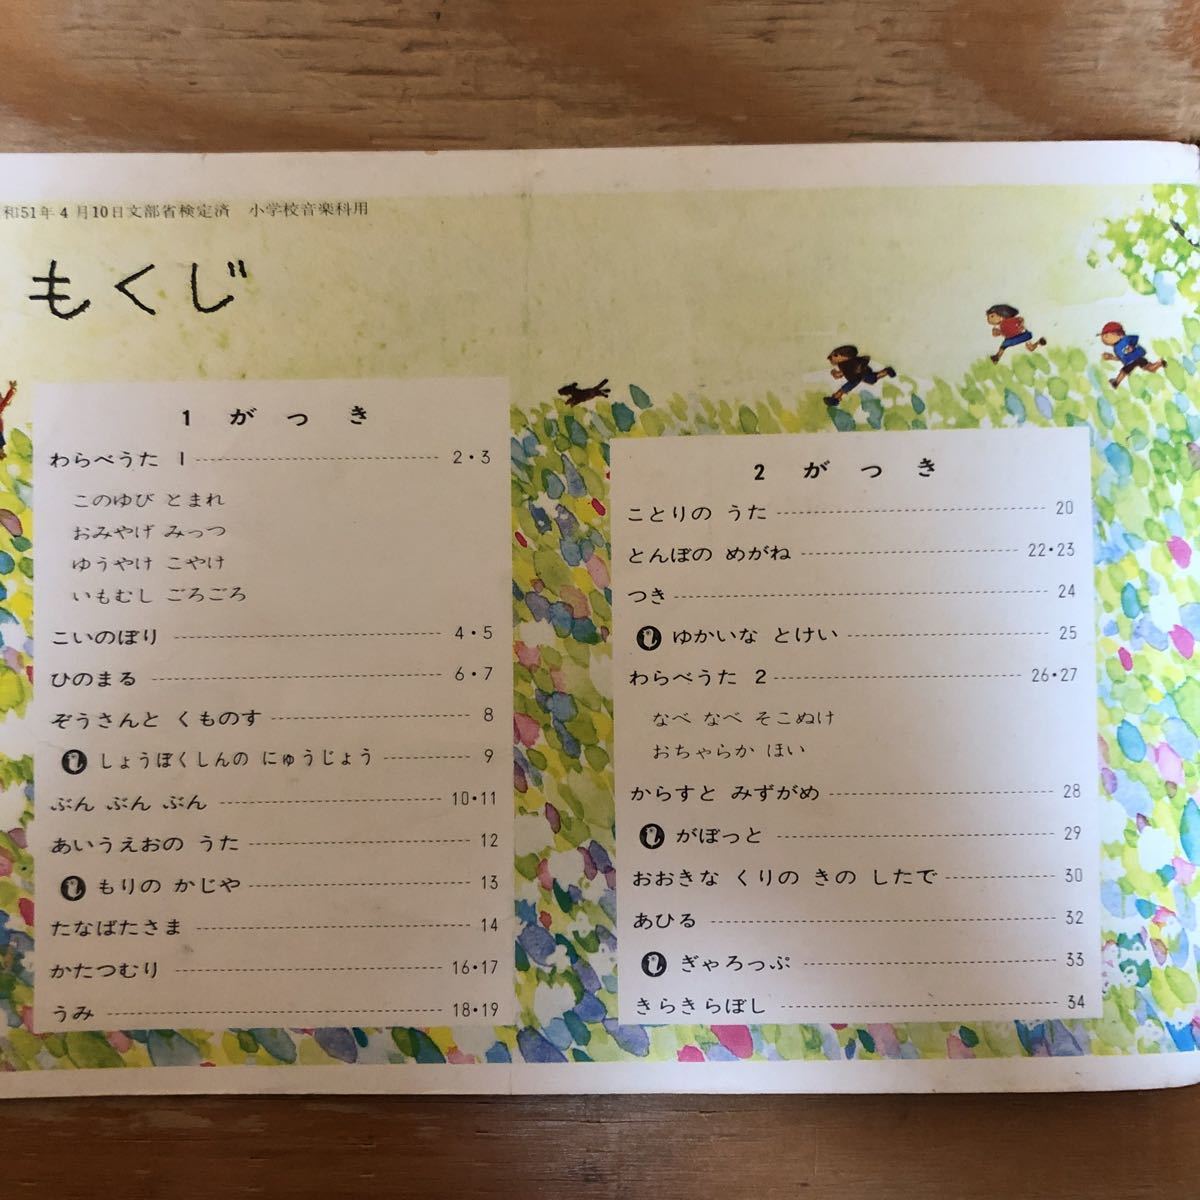 和51年4月10日文部省検定済 小学校音楽科用
もくじ
1 がつき
わらべうた 1 2・3
このゆび とまれ
おみやげ みっつ
ゆうやけ こやけ
いもむし ごろごろ
こいのぼり 4・5
ひのまる 6・7
ぞうさんと くものす 8
しょうぼくしんの にゅうじょう 9
ぶん ぶん ぶん 10・11
あいうえおの うた 12
もりの かじや 13
たなばたさま 14
かたつむり 16・17
うみ 18・19
2 がつき
ことりの うた 20
とんぼの めがね 22・23
つき 24
ゆかいな とけい 25
わらべうた 2 26・27
なべ なべ そこぬけ
おちゃらか ほい
からすと みずがめ 28
がぼっと 29
おおきな くりの きの したで 30
あひる 32
ぎゃろっぷ 33
きらきらぼし 34